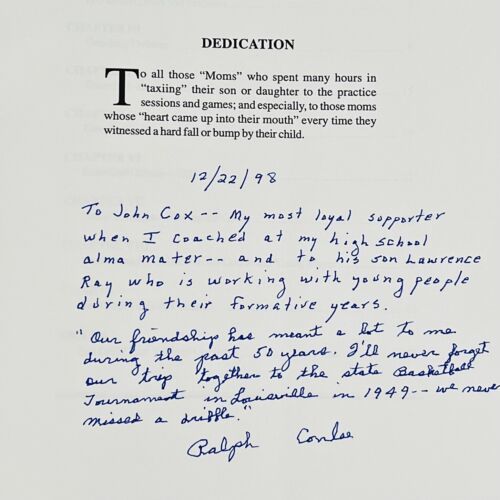 DEDICATION
To all those “Moms” who spent many hours in
“taxiing” their son or daughter to the practice
sessions and games; and especially, to those moms
whose “heart came up into their mouth” every time they
witnessed a hard fall or bump by their child.
12/22/98
To John Cox -- My most loyal supporter
when I coached at my high school
alma mater -- and to his son Lawrence
Ray who is working with young people
during their formative years.
"Our friendship has meant a lot to me
during the past 50 years. I'll never forget
our trip together to the state Basketball
Tournament in Louisville in 1949 -- we never
missed a dribble."
Ralph